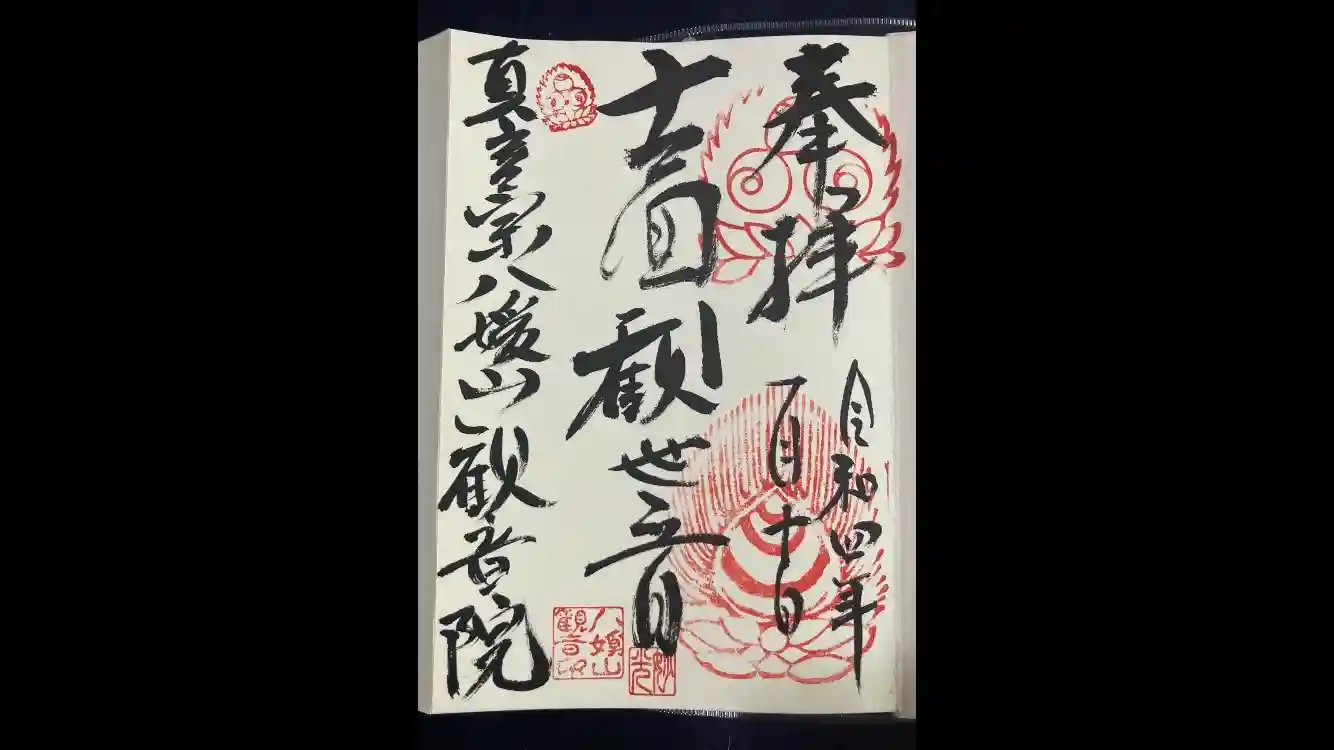 奉拝
令和四年
一月十日
十一面
観世音
真言宗八媛山観音院
八媛山
観音
妙光